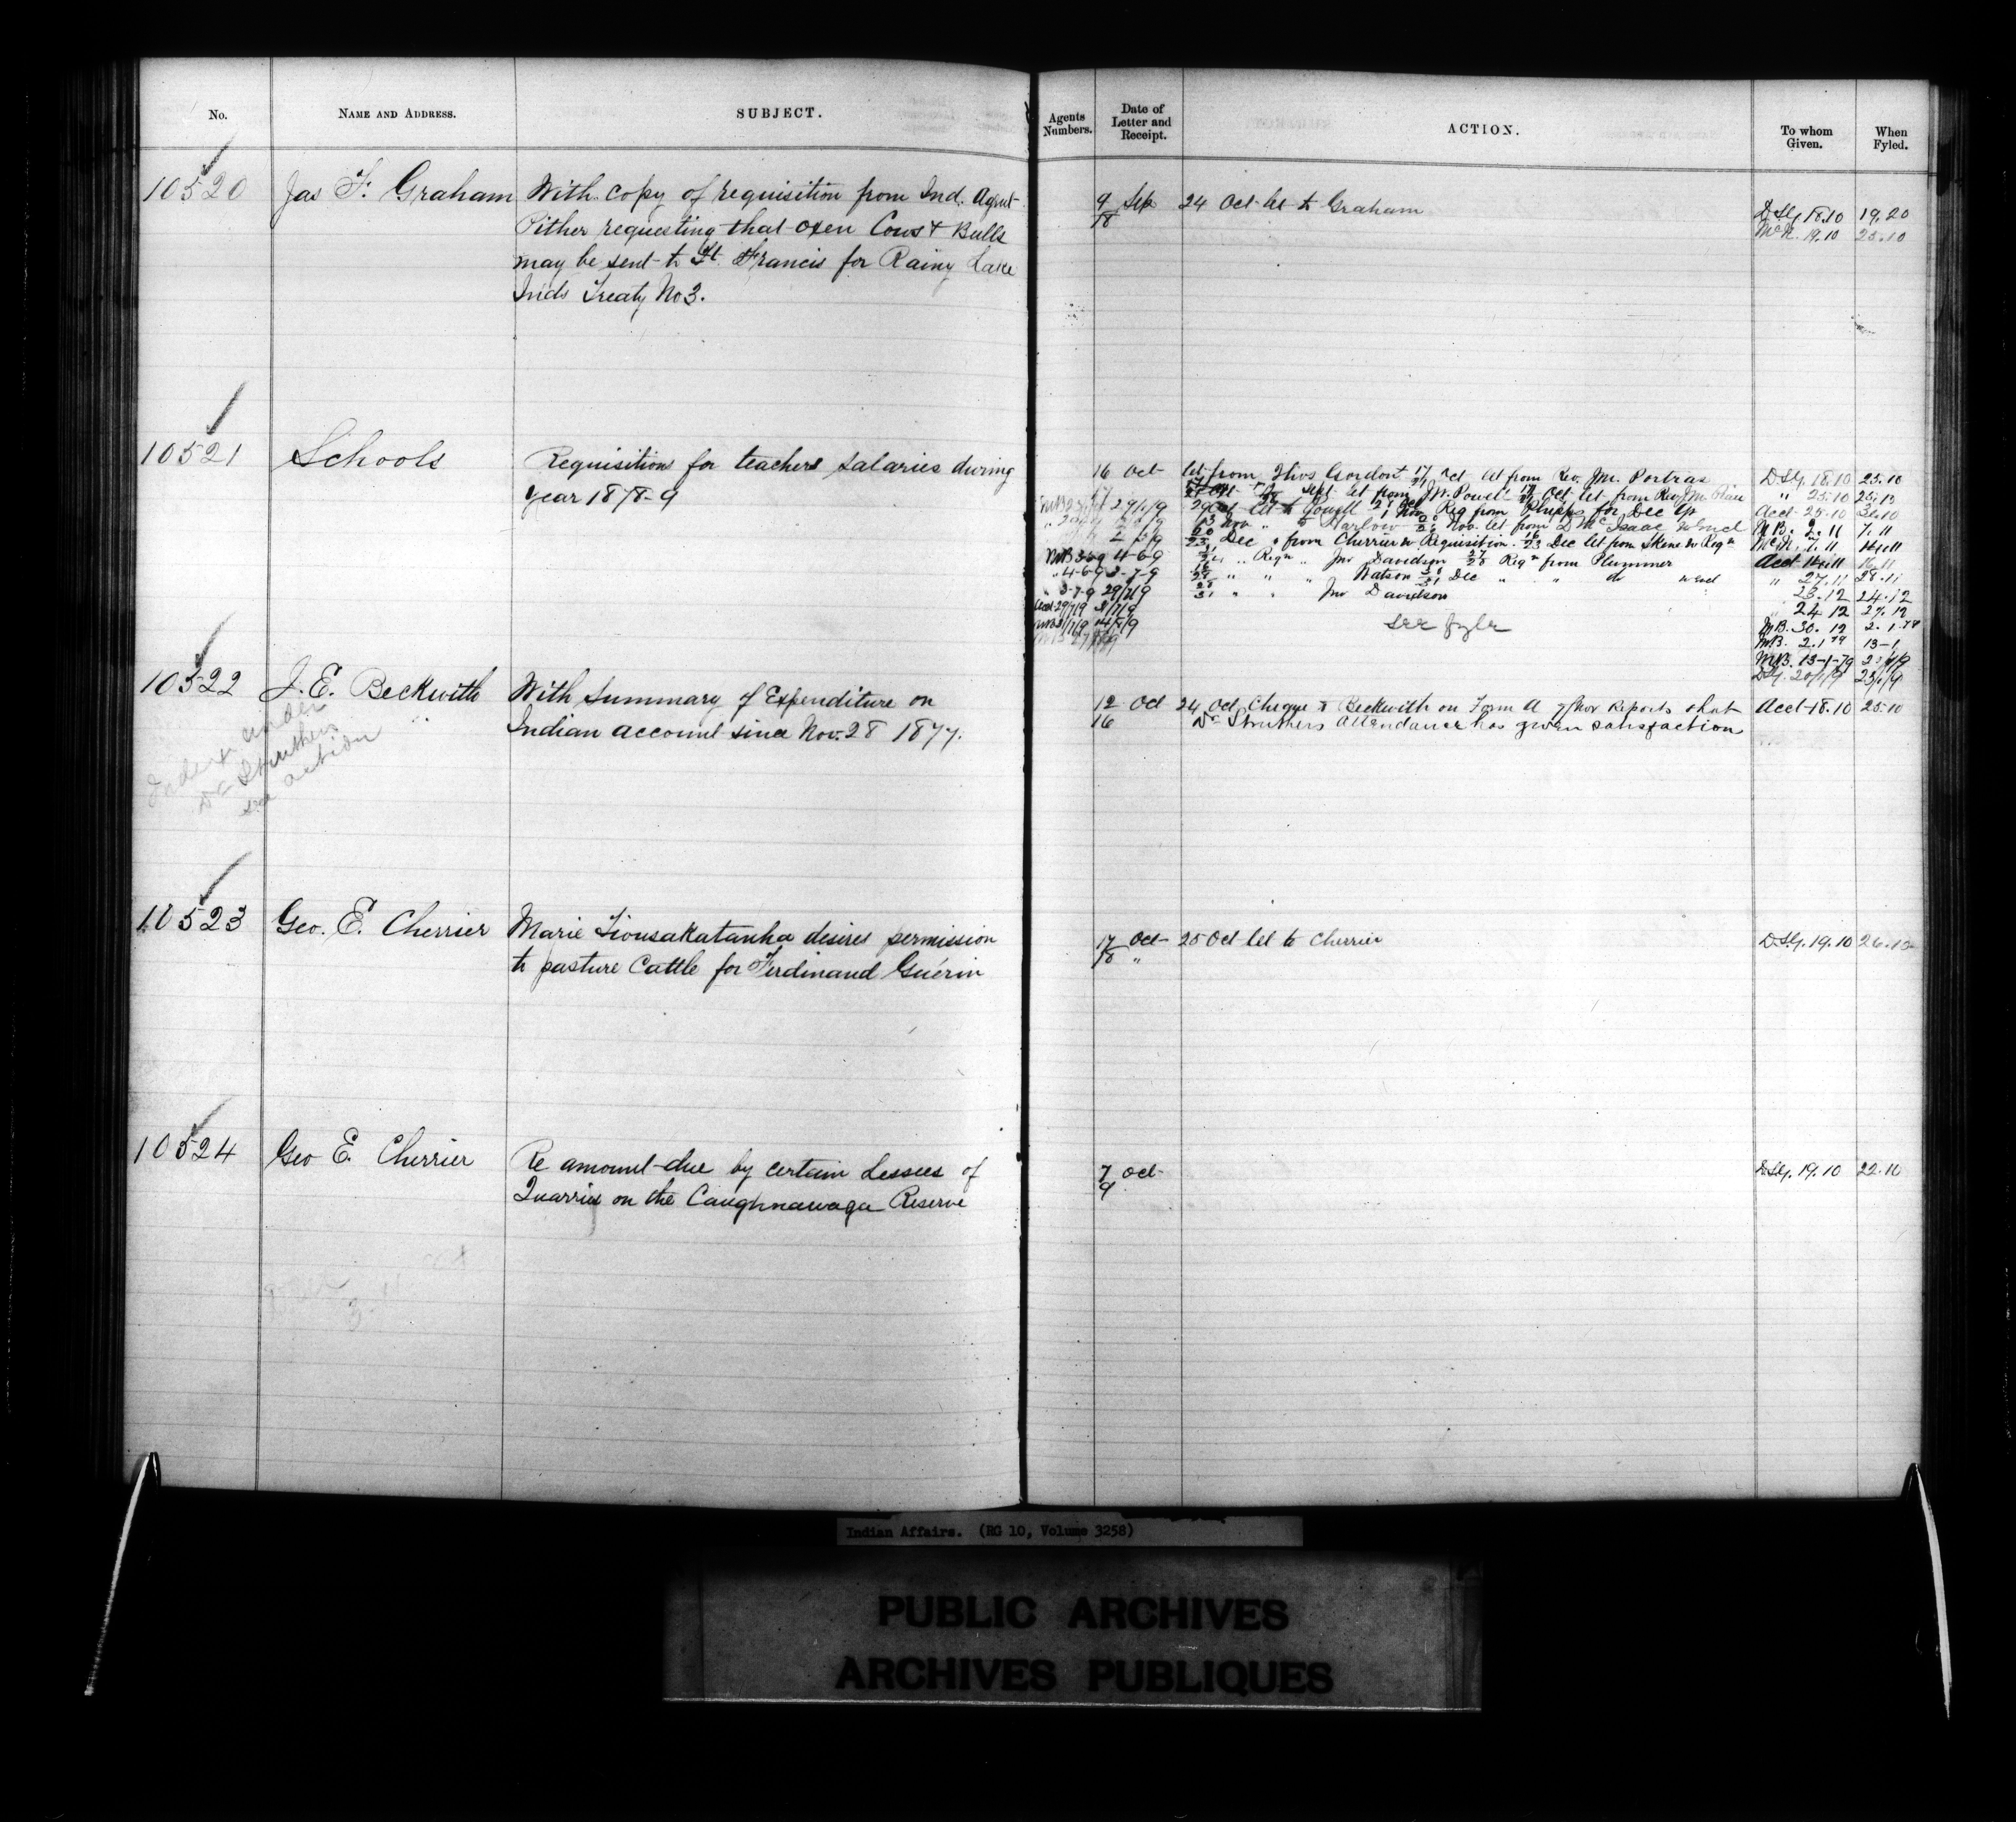 No. NAME AND ADDRESS. SUBJECT.
10520 Jas F. Graham With copy of requisition from Ind. Agent
Pither requesting that oxen Cows & Bulls
may be sent to Ft. Francis for Rainy Lake
Inds Treaty No 3.
10521 Schools Requisitions for teachers salaries during
year 1878-9
10522 J. E. Beckwith With Summary of Expenditure on
Indian account since Nov. 28 1877.
Index under
Dr Struthers
see action
10523 Geo. E. Cherrier Marie Tiousakatanha desires permission
to pasture Cattle for Ferdinand Guérin
10524 Geo E. Cherrier Re amount due by certain Lessees of
Quarries on the Caughnawaga Reserve
Agents Numbers. Date of Letter and Receipt. ACTION. To whom Given. When Fyled.
9 Sep 24 Oct let to Graham D.S.G. 18.10 19.20
18 McN. 19.10 25.10
16 Oct let from Thos Gordon 17/21 Oct let from Rev. Jn. Portras D.S.G. 18.10 23.10
17 Sept let from Powell Oct let from Rev " 25.10 25.10
29 Oct let to Powell Nov Req from Phipps for Dec Acct 25.10 31.10
13 Nov " to Harlow Nov. let from D McIsaac w Encl M.B. 2.11 7.11
Dec " from Cherrier w Requisition 16/23 Dec let from Skene w Reqn McN. 7.11
" Reqn " Jno Davidson 27/28 Reqn from Plummer Acct 14.11 16.11
4-6-9 3-7-9 " " " Watson Dec " " do w Encl " 27.11 28.11
" 3-7-9 29/7/9 28/31 " " Jno Davidson 23.12 24.12
Acct 29/7/9 " 24 12 27.12
see fyle M.B. 30.12 2.1.79
M.B. 2.1.79 13-1
M.B. 13-1-79
D.S.G.
12 Oct 24 Oct Cheque to Beckwith on Form A Reports that Acct 18.10 25.10
16 Dr Struthers attendance has given satisfaction
17 Oct 25 Oct let to Cherrier D.S.G. 19.10 26.10
18 "
7 Oct D.S.G. 19.10 22.10
9
Indian Affairs. (RG 10, Volume 3258)
PUBLIC ARCHIVES
ARCHIVES PUBLIQUES